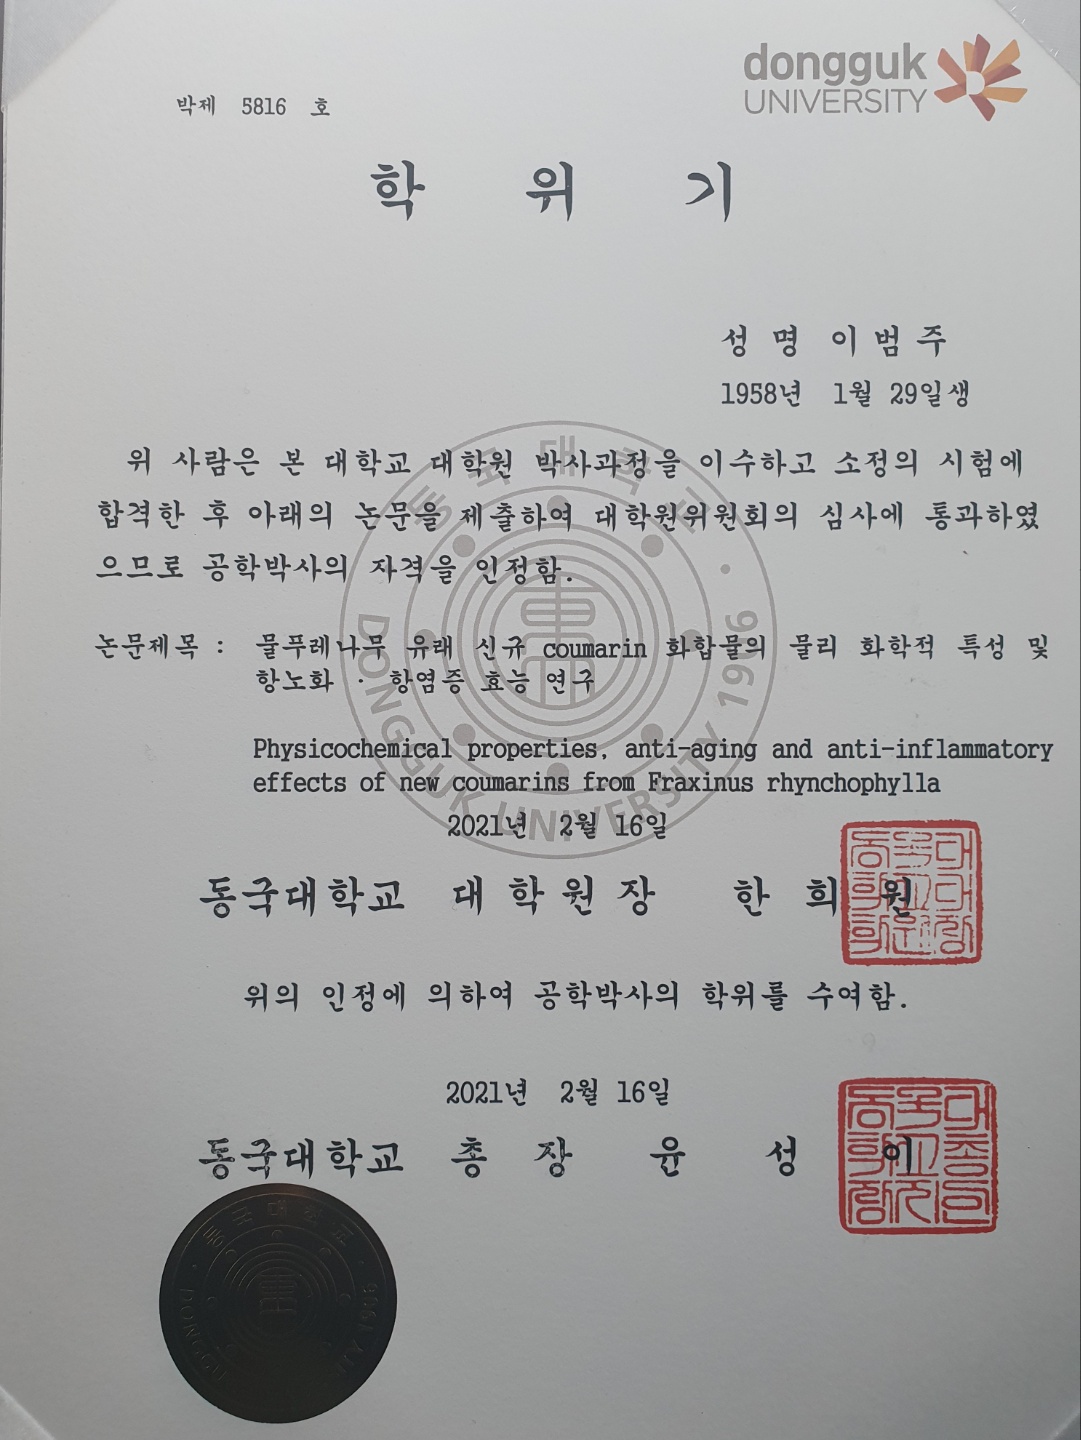 dongguk
UNIVERSITY
박제 5816 호
학 위 기
성 명 이 범 주
1958년 1월 29일생
위 사람은 본 대학교 대학원 박사과정을 이수하고 소정의 시험에
합격한 후 아래의 논문을 제출하여 대학원위원회의 심사에 통과하였
으므로 공학박사의 자격을 인정함.
논문제목 : 물푸레나무 유래 신규 coumarin 화합물의 물리 화학적 특성 및
항노화 · 항염증 효능 연구
Physicochemical properties, anti-aging and anti-inflammatory
effects of new coumarins from Fraxinus rhynchophylla
2021년 2월 16일
동국대학교 대 학 원 장 한 희 원
위의 인정에 의하여 공학박사의 학위를 수여함.
2021년 2월 16일
동국대학교 총 장 윤 성 이
동국대학교
DONGGUK UNIVERSITY 1906
동국대학교